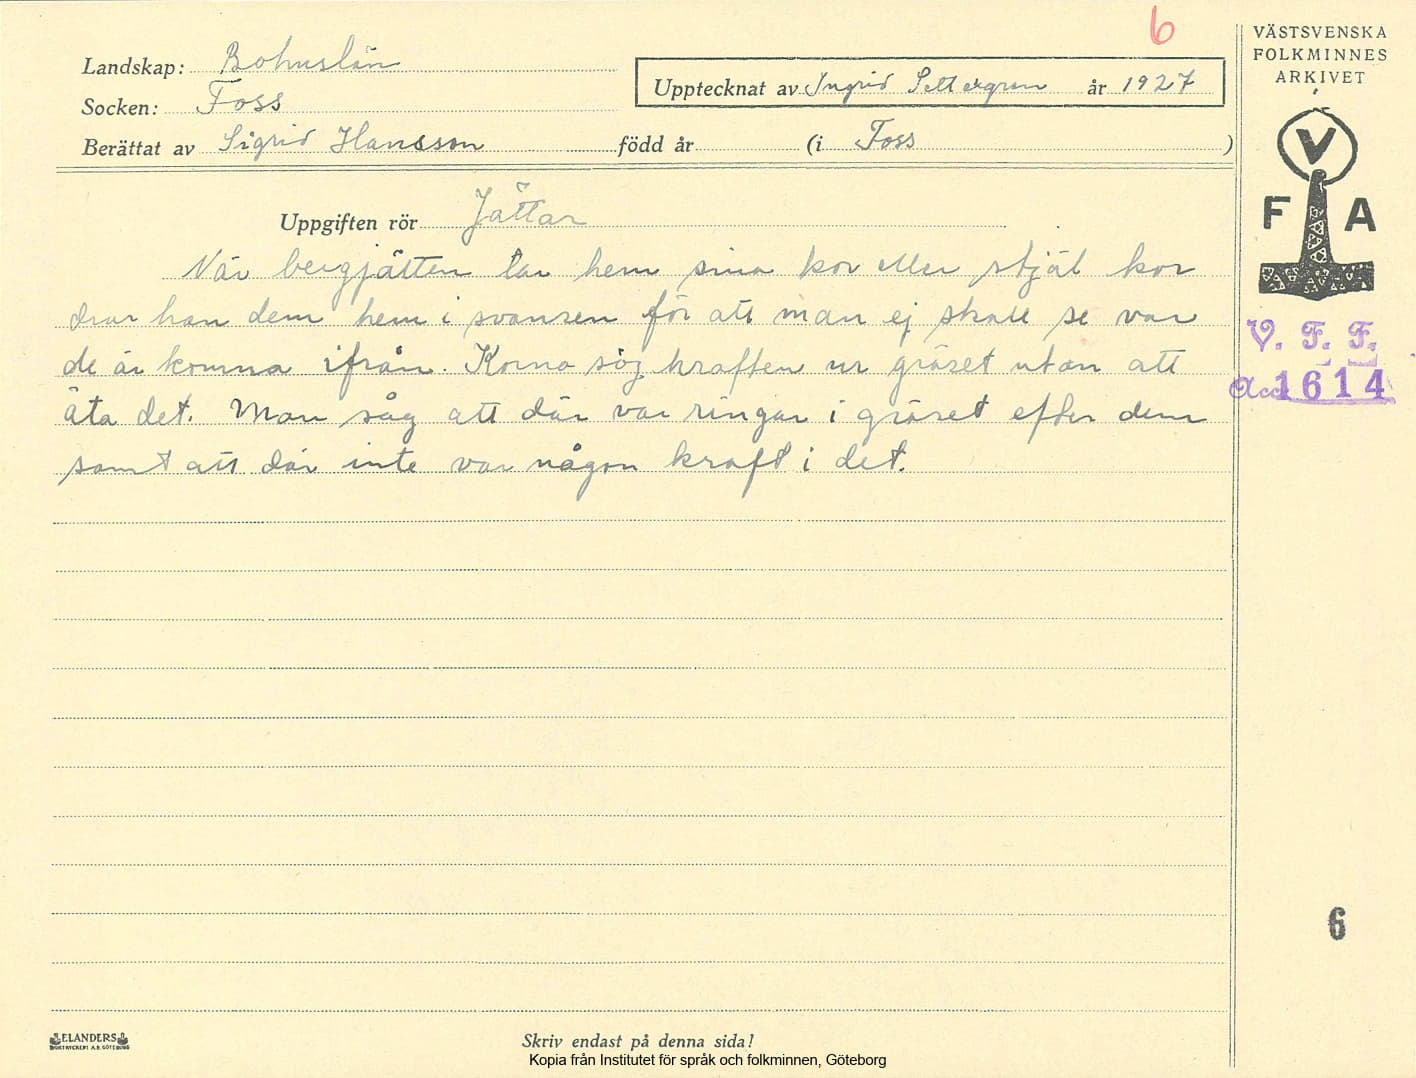 6
Landskap: Bohuslän
Upptecknat av Ingrid Settergren år 1927
Socken: Foss
Berättat av Sigrid Hansson född år (i Foss )
VÄSTSVENSKA
FOLKMINNES
ARKIVET
V
F A
Uppgiften rör Jättar
När bergjätten tar hem sina kor eller stjäl kor
drar han dem hem i svansen för att man ej skall se var
de är komna ifrån. Korna sög kraften ur gräset utan att
äta det. Man såg att där var ringar i gräset efter dem
samt att där inte var någon kraft i det.
V. F. F.
Acc. 1614
6
ELANDERS
BOKTRYCKERI A.B. GÖTEBORG
Skriv endast på denna sida!
Kopia från Institutet för språk och folkminnen, Göteborg